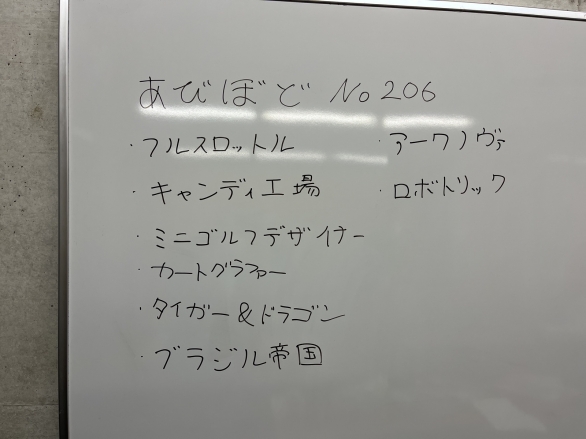 あびぼど No 206
・フルスロットル
・キャンディ工場
・ミニゴルフデザイナー
・カートグラファー
・タイガー&ドラゴン
・ブラジル帝国
・アークノヴァ
・ロボトリック